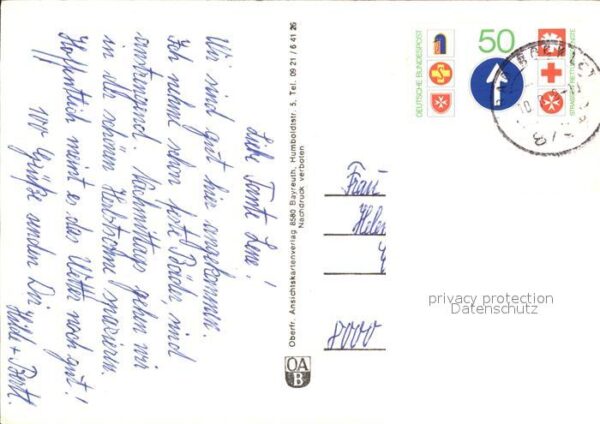 Liebe Tante Lene!
Wir sind gut hier angekommen.
Ich nehme schon fest Bäder, sind
anstrengend. Nachmittags gehen wir
in der schönen Herbstsonne spazieren.
Hoffentlich meint es das Wetter noch gut!
100 Grüße an den Drei
Hilde + Bertl.
Oberfr. Ansichtskartenverlag 8580 Bayreuth, Humboldtstr. 5, Tel. 09 21 / 6 41 26
Nachdruck verboten
OA
B
DEUTSCHE BUNDESPOST
50
Frau
8000
privacy protection
Datenschutz